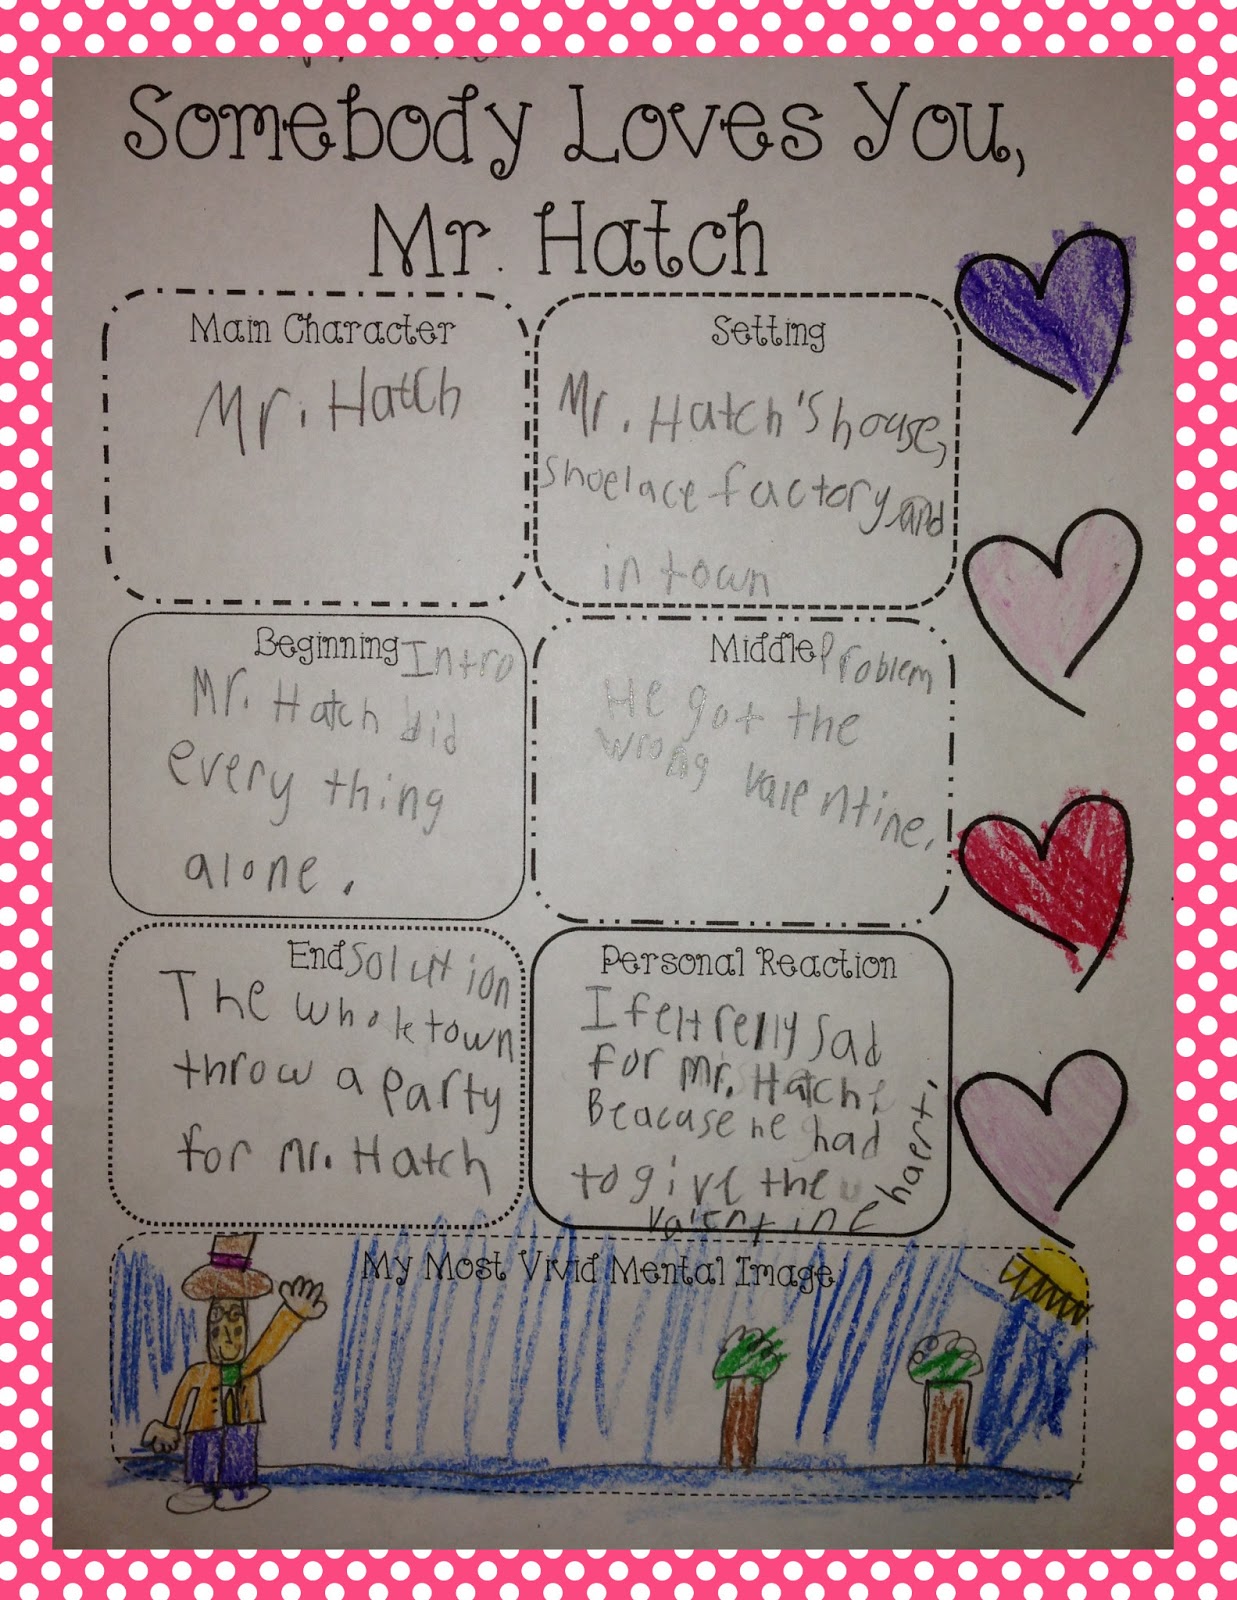 Somebody Loves You,
Mr. Hatch
Main Character
Mr. Hatch
Setting
Mr. Hatch's house,
Shoelace factory and
in town
Beginning Intro
Mr. Hatch did
every thing
alone.
Middle Problem
He got the
wrong valentine.
End Solution
The whole town
throw a party
for Mr. Hatch
Personal Reaction
I felt relly sad
for Mr. Hatch
Beacause he had
to give the
valentine haert.
My Most Vivid Mental Image